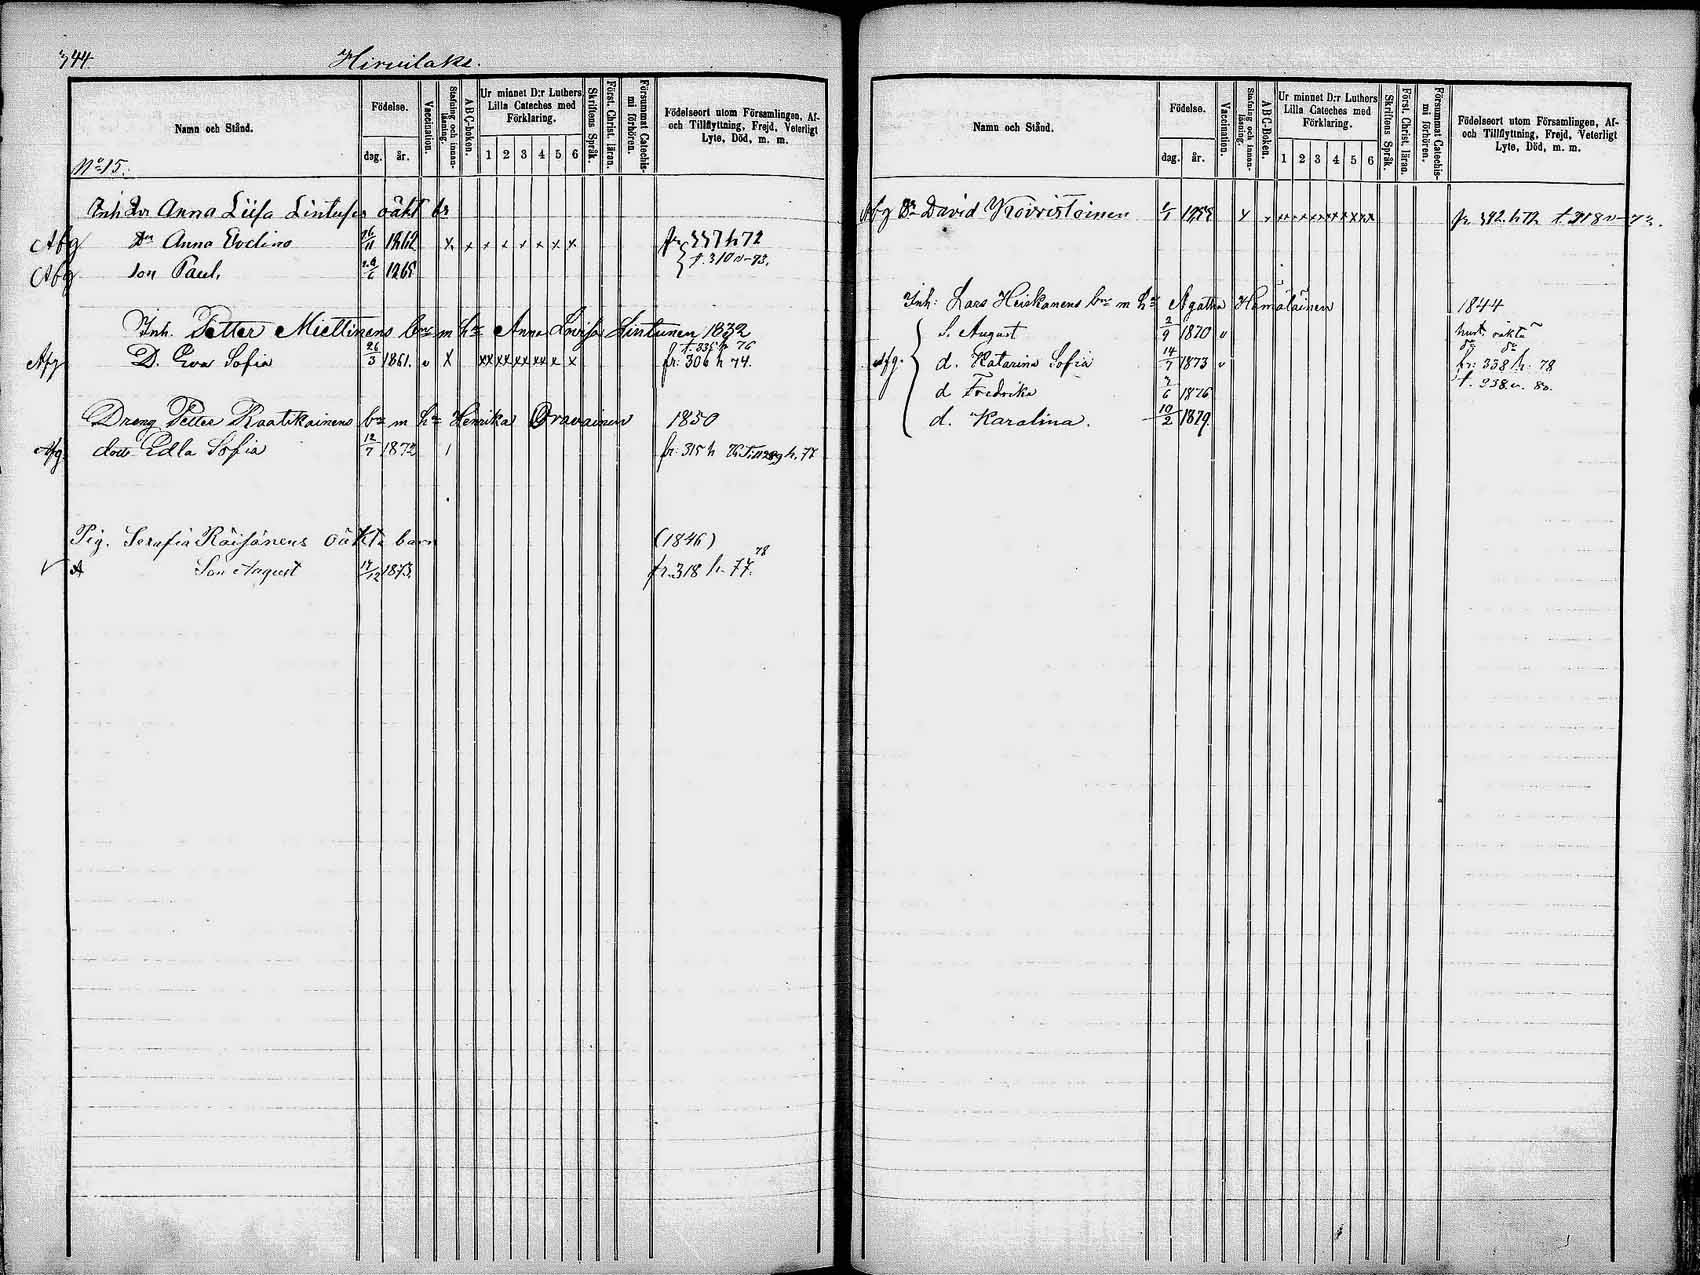 344.
Hirvilaks.
Namn och Stånd.
Födelse.
dag. år.
Vaccination.
Stafning och innan-läsning.
ABC-boken.
Ur minnet D:r Luthers Lilla Cateches med Förklaring.
1 2 3 4 5 6
Skriftens Språk.
Först. Christ. läran.
Försummat Catechis-mi förhören.
Födelseort utom Församlingen, Af- och Tillflyttning, Frejd, Veterligt Lyte, Död, m. m.
No 15.
Inh. Anna Liisa oäkt br
Afg Anna 26/11 1862 x x x x x x x x fr 337 h 72
Afg son Paul, 1865 t. 310 v-73.
Inh. Petter Miettinens bn m h Anna Lovisa Lintunen 1832
t. 335 h 76
Afg D. Eva Sofia 26/3 1861. v x xx xx xx xx x x fr: 306 h 74.
Dreng Petter Raatikainens bn m h Henrika Oravainen 1850
Afg dott Edla Sofia 12/7 1872 1 fr: 315 h h. 77
Pig. Serafia Räisänens oäkta barn (1846)
Son August 17/12 1873. fr. 318 h. 77. 78
Namn och Stånd.
Födelse.
dag. år.
Vaccination.
Stafning och innan-läsning.
ABC-Boken.
Ur minnet D:r Luthers Lilla Cateches med Förklaring.
1 2 3 4 5 6
Skriftens Språk.
Först. Christ. läran.
Försummat Catechis-mi förhören.
Födelseort utom Församlingen, Af- och Tillflyttning, Frejd, Veterligt Lyte, Död, m. m.
Afg David Kovvristoinen fr. 392 h 72 t. 318 v
Inh: Lars Heiskanens bn m h Agatha Hämäläinen 1844
S. August 2/9 1870 v
Afg. d. Katarina Sofia 14/7 1873 v fr: 338 h. 78
d Fredrika 2/6 1876 t. 338 v. 80.
d. Karolina. 10/2 1879.